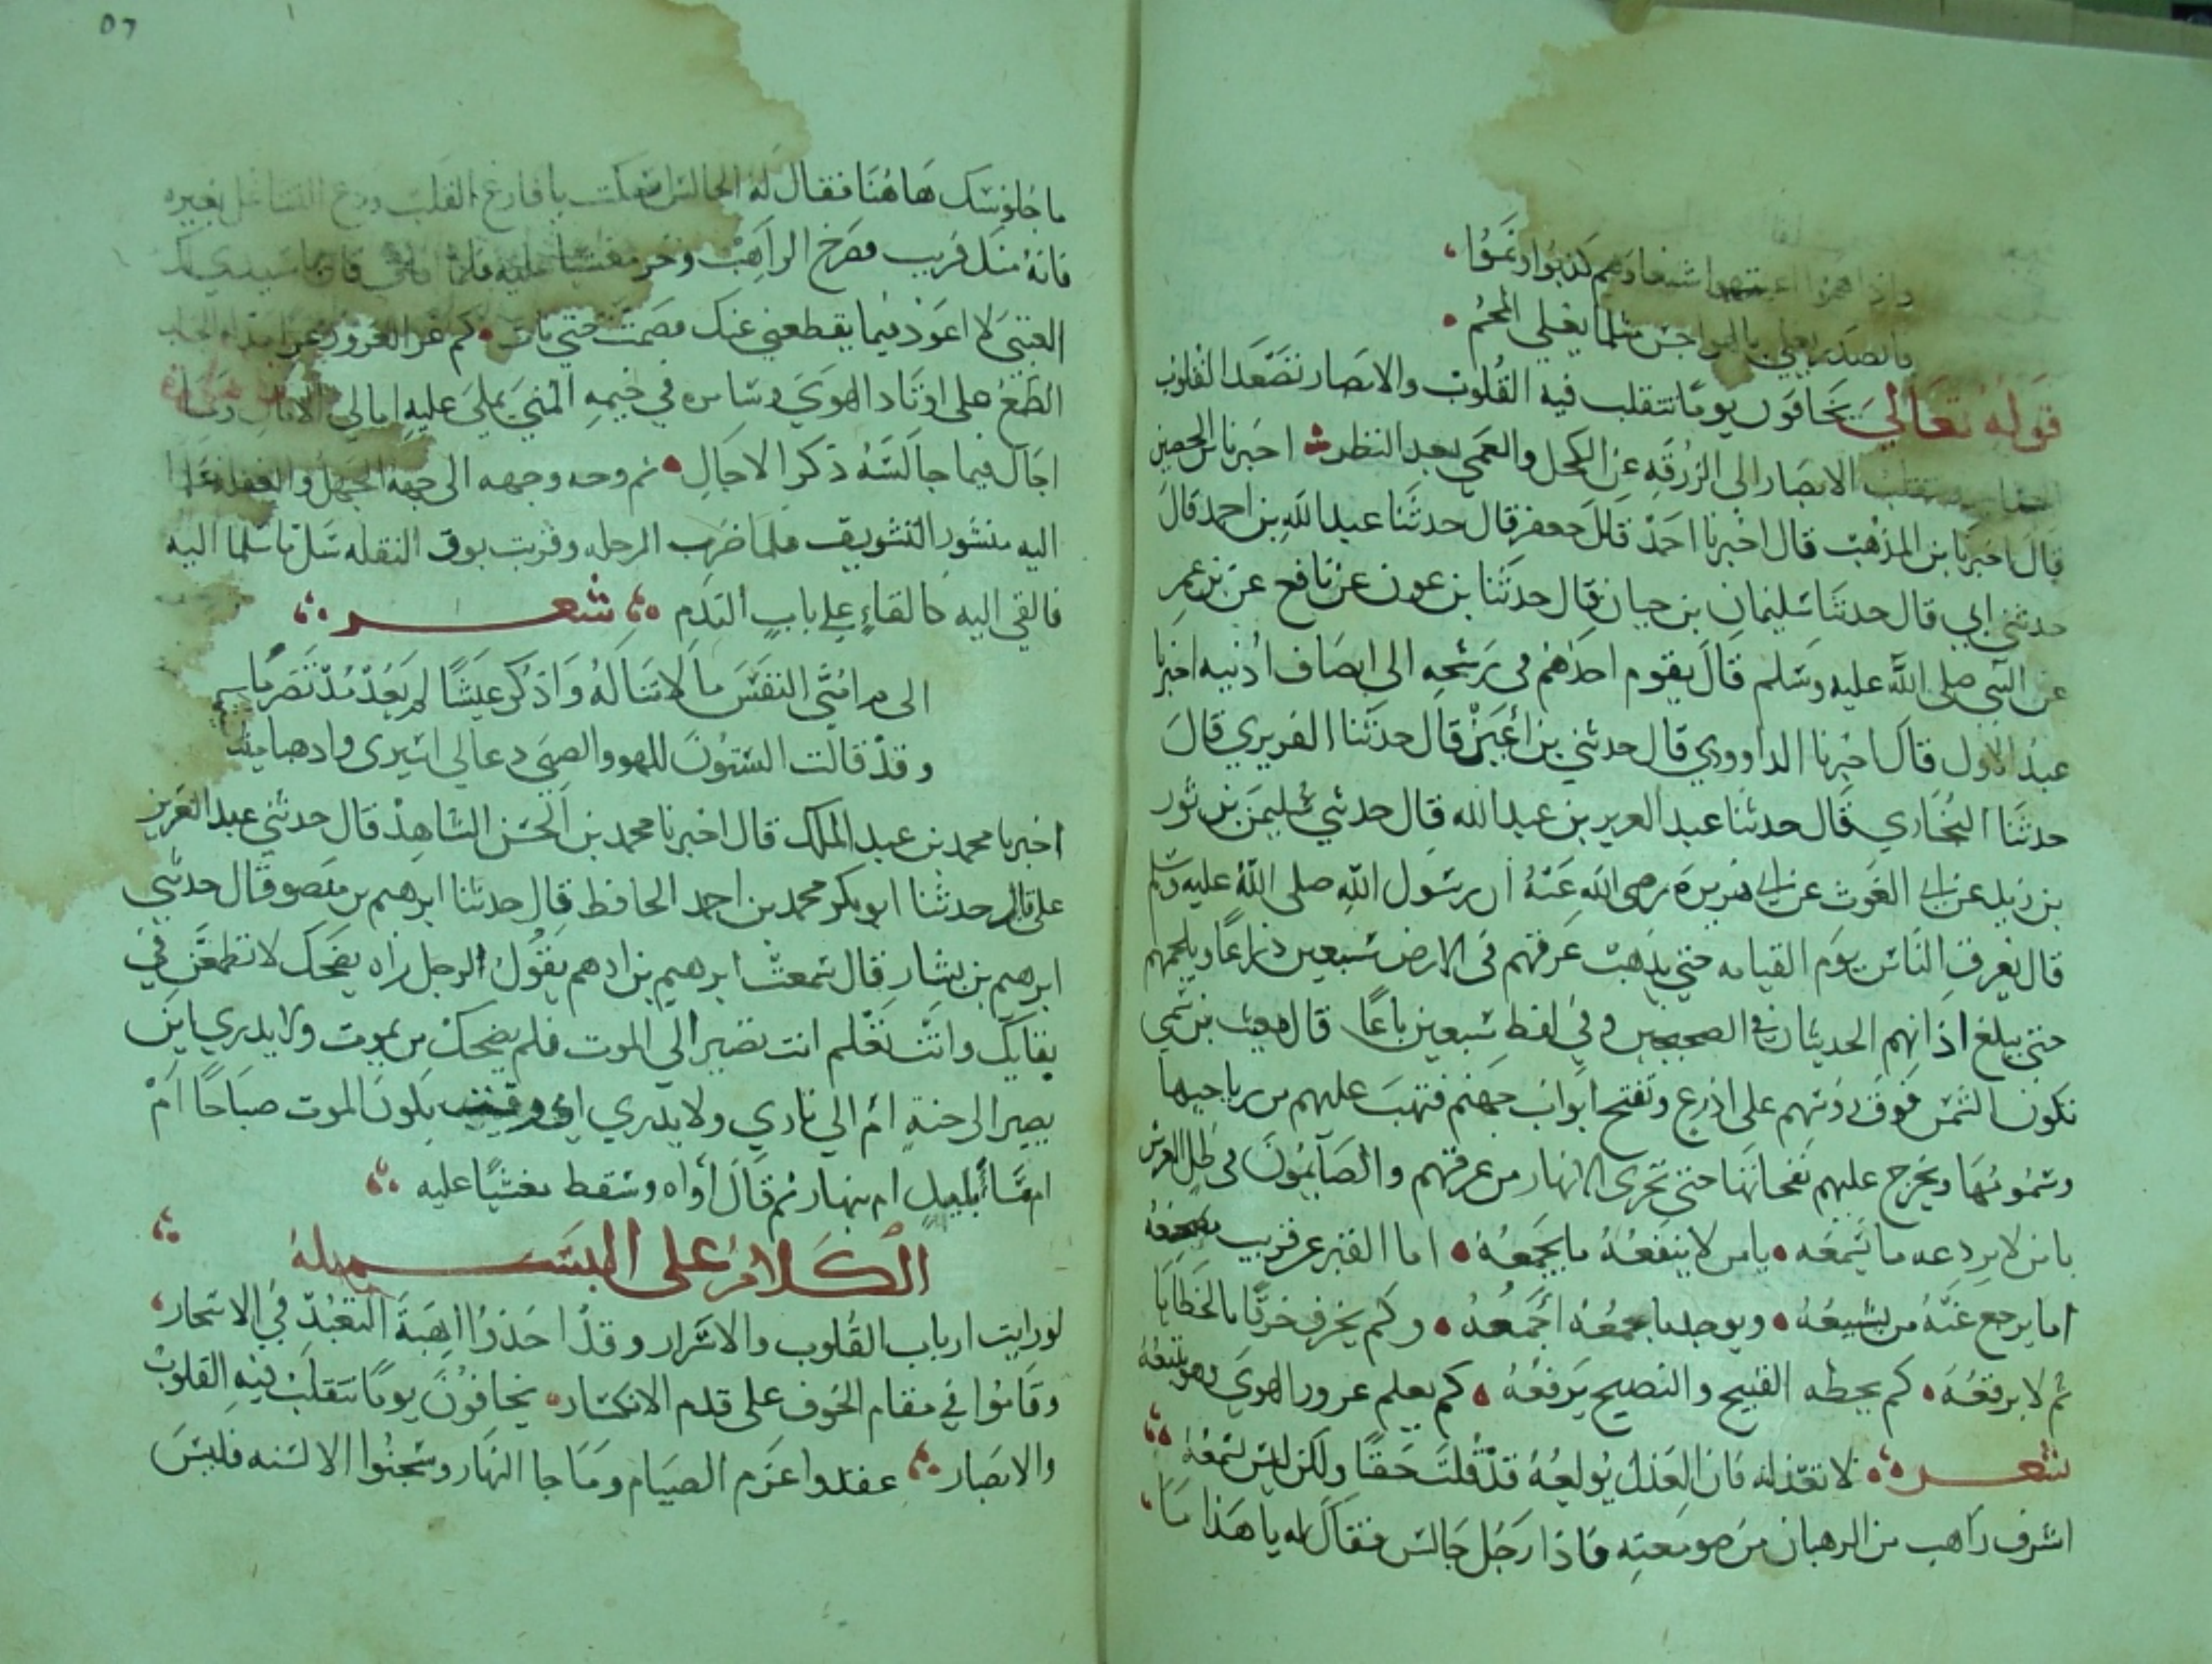 واذا هموا اشعارهم كذبوا وتمقوا
بالصدر يغلي بالهواجس مثلما يغلي المحم
قوله تعالى يخافون يوما تتقلب فيه القلوب والابصار تصعد القلوب
الابصار الى الزرقه عن الكحل والعمى بعد النظر اخبرنا بن الحصين
قال اخبرنا بن المذهب قال اخبرنا احمد قال حعفر قال حدثنا عبد الله بن احمد قال
حدثني ابي قال حدثنا سليمان بن حيان قال حدثنا بن عون عن نافع عن بن عمر
عن النبي صلى الله عليه وسلم قال يقوم احدهم في رشحه الى انصاف اذنيه اخبرنا
عبد الاول قال اخبرنا الداوودي قال حدثني بن أعين قال حدثنا الفربري قال
حدثنا البخاري قال حدثنا عبد العزيز بن عبد الله قال حدثني سليمن بن ثور
بن زيد عن ابي الغوث عن ابي هريرة رضي الله عنه ان رسول الله صلى الله عليه وسلم
قال يعرق الناس يوم القيامه حتى يذهب عرقهم في الارض سبعين ذراعا ويلجمهم
حتى يبلغ اذانهم الحديثان في الصحيحين وفي لفظ سبعين باعا قال مغيث بن سمي
تكون الشمس فوق رؤسهم على اذرع وتفتح ابواب جهنم فتهب عليهم من رياحها
وسمومها ويخرج عليهم نفحاتها حتى تجري الانهار من عرقهم والصايمون في ظل العرش
يا من لا يردعه ما يسمعه يا من لا ينفعه ما يجمعه اما القبر عن قريب
اما يرجع عنه من يشيعه ويوحد ما جمعه اجمعه وكم يخرق خرقا بالخطايا
ثم لا يرقعه كم يحطه القبيح والنصيح يرفعه كم يعلم غرور الهوى وهو يتبعه
شعر لا تعذليه فان العذل يولعه قد قلت حقا ولكن ليس يسمعه
اشرف راهب من الرهبان من صومعته فاذا رجل جالس فقال له يا هذا ما
ما جلوسك هاهنا فقال له الجالس اسكت يا فارغ القلب ودع التشاغل بغيره
فانه منك قريب فصرخ الراهب وخر مغشيا عليه فلما افاق قال يا سيدي لك
العتبى لا اعود فيما يقطعني عنك فصمت حتى مات كم غر الغرور
الطمع على اوتاد الهوى وسامره في خيمه المنى يملي عليه امالي الامال
اجال فيما جالسه ذكر الاجال ثم وجه وجهه الى جهه الجهل والغفله
اليه منشور التسويف فلما ضرب الرحله وضربت بوق النقله سل ما سلما اليه
فالقى اليه كالقاء على باب الندم شعر
الى م امني النفس ما لا تناله واذكر عيشا لم يعد مذ تصرما
وقد قالت الستون للهو والصبى دعا لي اسيري واذهبا
اخبرنا محمد بن عبد الملك قال اخبرنا محمد بن الحسن الشاهد قال حدثني عبد العزيز
علي قال حدثنا ابو بكر محمد بن احمد الحافظ قال حدثنا ابرهيم بن منصور قال حدثني
ابرهيم بن بشار قال سمعت ابرهيم بن ادهم يقول لرجل راه يضحك لا تطمعن في
بقايك وانت تعلم انت تصير الى الموت فلم يضحك من يموت ولا يدري اين
يصير الى جنة ام الى نار ولا يدري اي وقت يكون الموت صباحا ام
امسا أبليل ام نهار ثم قال أواه وسقط مغشيا عليه
الكلام على البسمله
لو رايت ارباب القلوب والاسرار وقد اخذوا اهبة التعبد في الاسحار
وقاموا في مقام الخوف على قدم الانكسار يخافون يوما تتقلب فيه القلوب
والابصار عقدوا عزم الصيام وما جا النهار وسجنوا الالسنه فليس